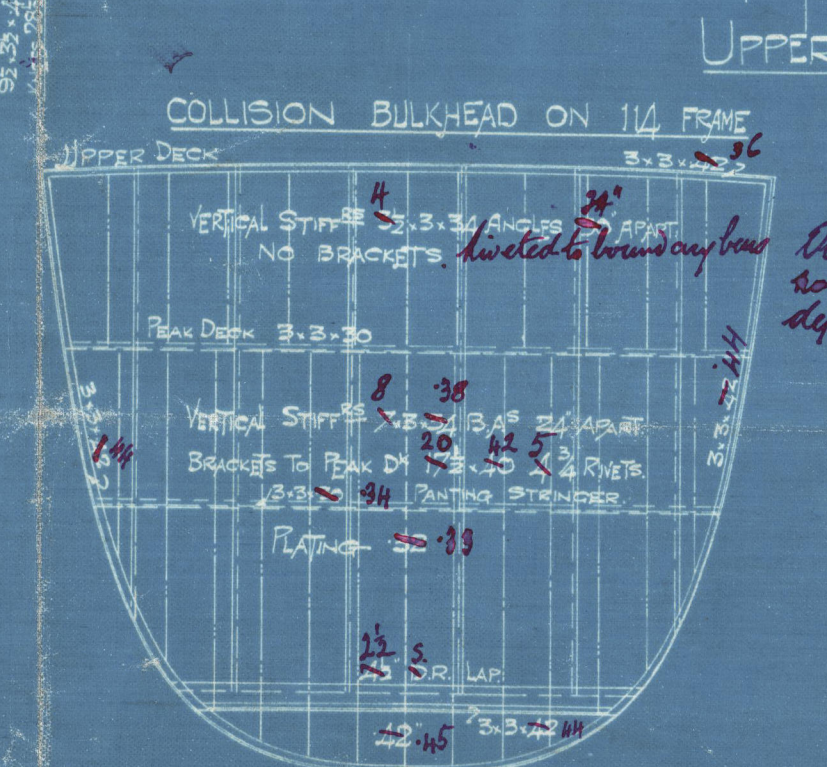 UPPER
COLLISION BULKHEAD ON 114 FRAME
UPPER DECK
3×3×.42 .36
4 24"
VERTICAL STIFFRS 3½×3×34 ANGLES APART.
NO BRACKETS. Riveted to boundary bars
PEAK DECK 3×3×30
.44
8 .38
VERTICAL STIFFRS 7×3×34 B.AS 24" APART
20 42 5
BRACKETS TO PEAK DK 17½×40 4 ¾ RIVETS.
.44
3×3× .34 PANTING STRINGER
PLATING .32 .33
2½ S.
D.R. LAP.
3×3×42 44
42" .45